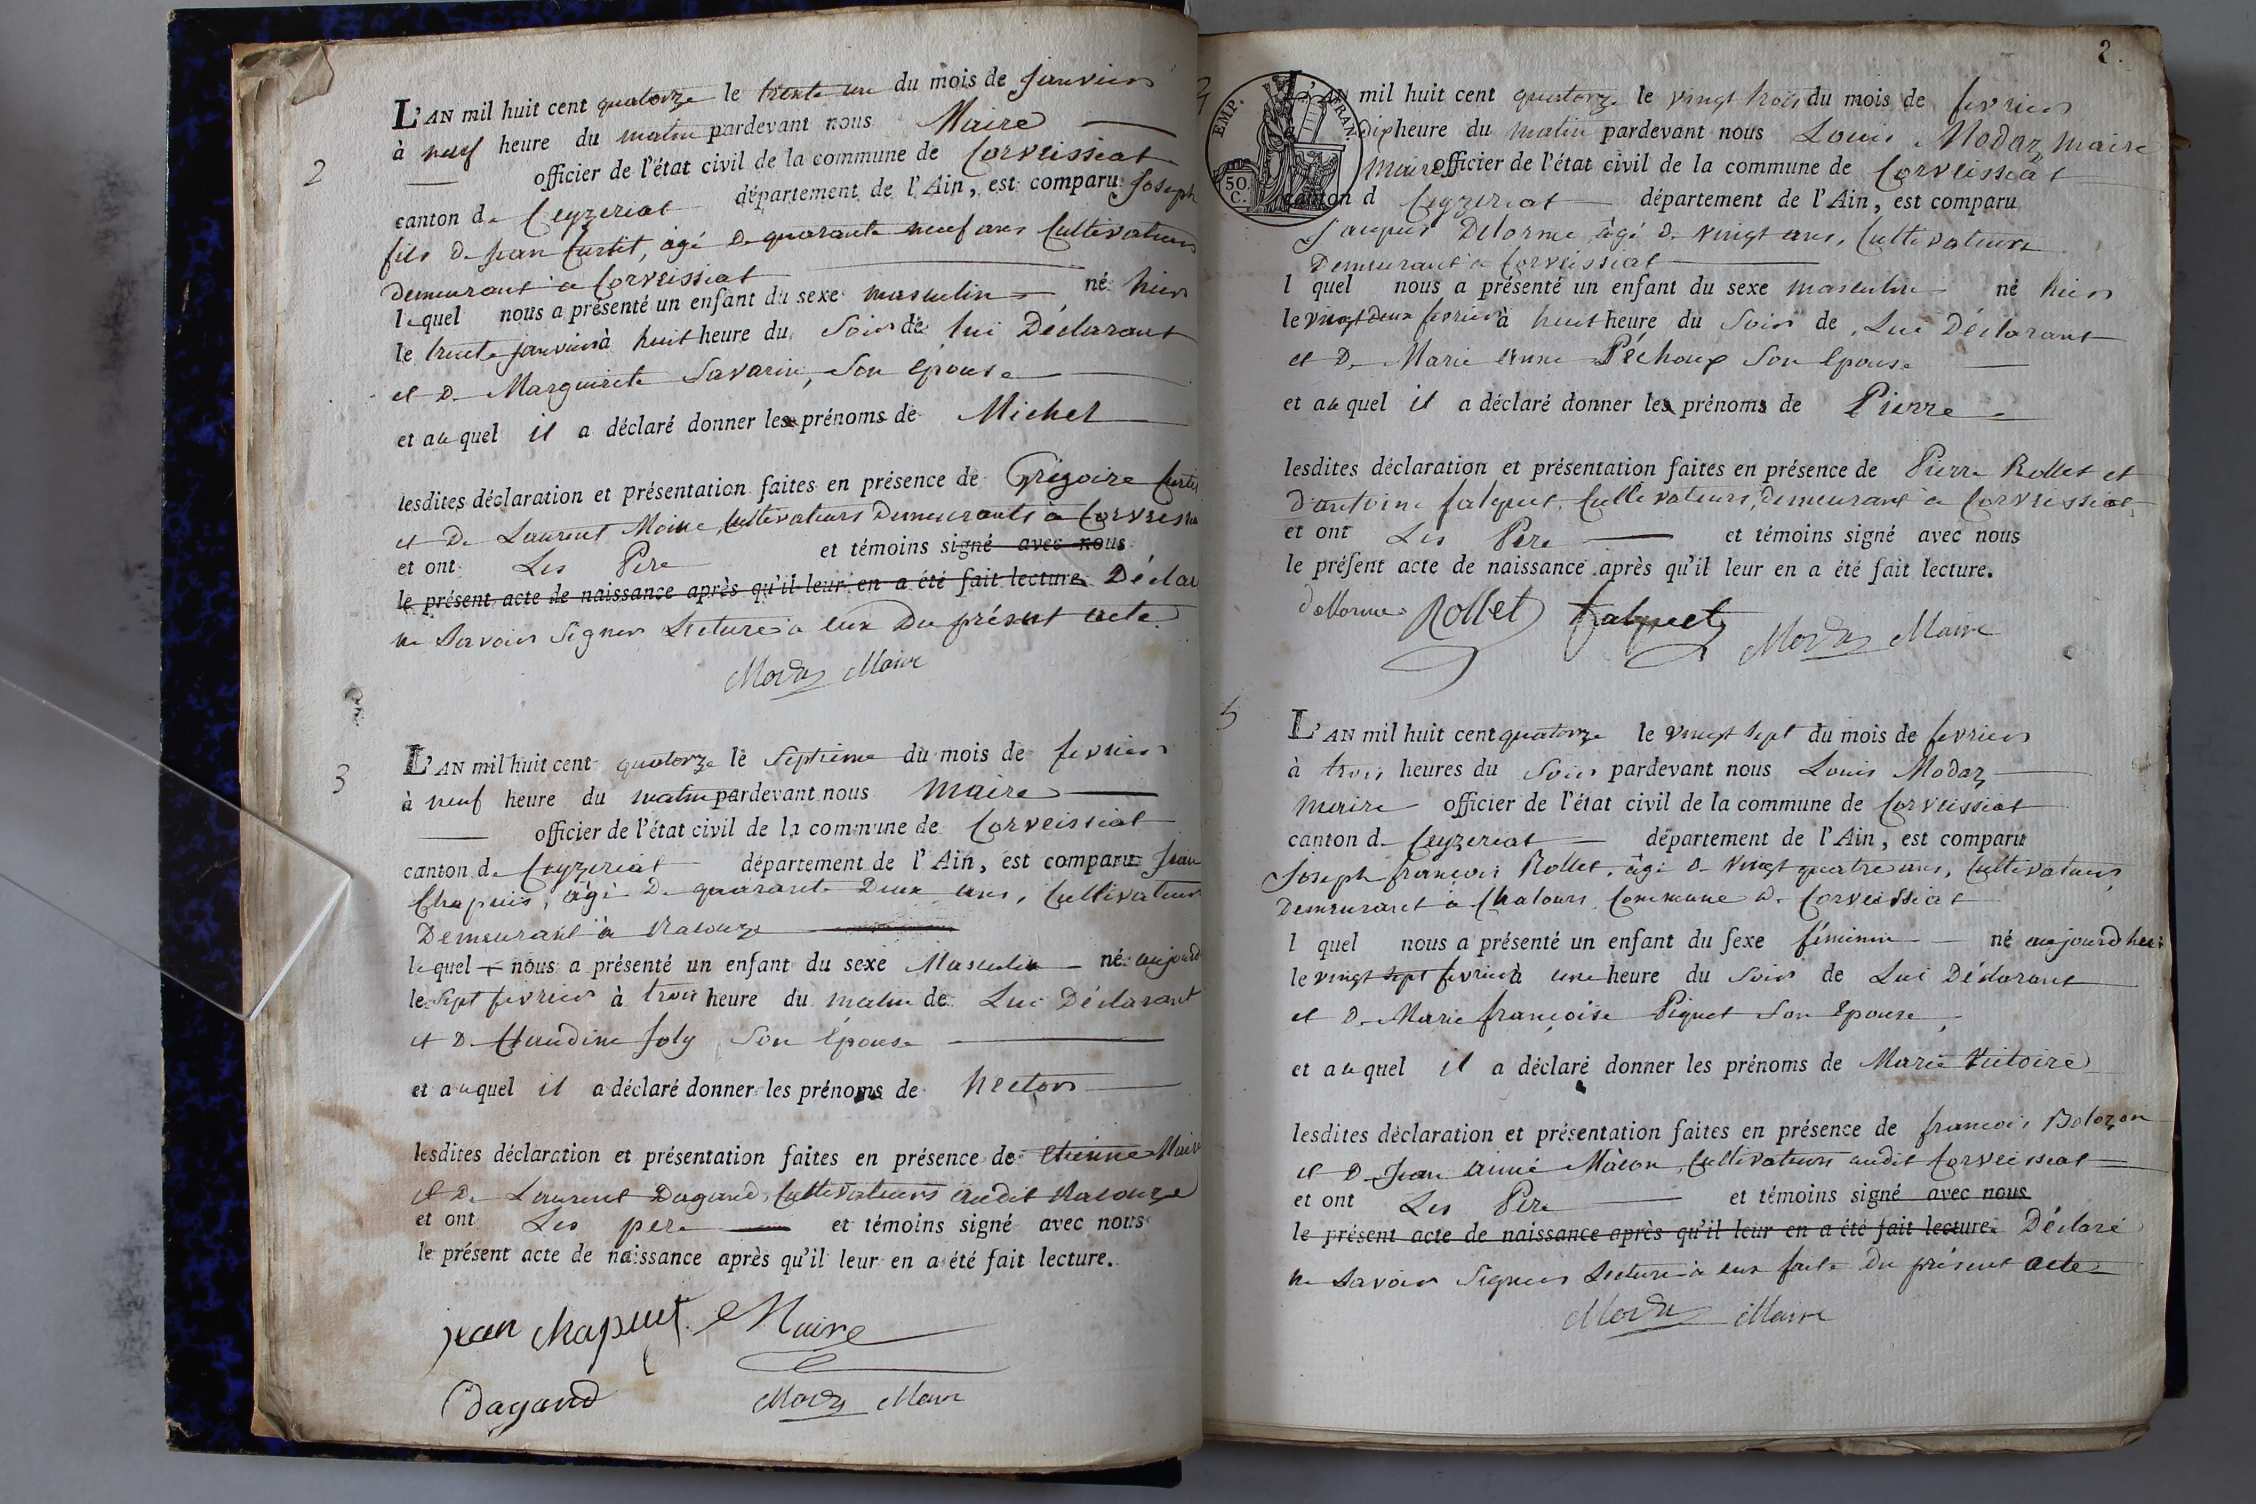 2
L'AN mil huit cent quatorze le trente un du mois de Janvier
à neuf heure du matin pardevant nous Maire
officier de l'état civil de la commune de Corveissiat
canton de Ceyzeriat département de l'Ain, est comparu Joseph
fils de Jean Curtit, âgé de quarante neuf ans Cultivateur
demeurant à Corveissiat
lequel nous a présenté un enfant du sexe masculin né hier
le trente janvier à huit heure du Soir de lui Déclarant
et de Marguirite Savarin, Son épouse
et auquel il a déclaré donner les prénoms de Michel
lesdites déclaration et présentation faites en présence de Grégoire Curtit
et de Laurent Moine, Cultivateurs Demeurants à Corveissia
et ont Les Père et témoins signé avec nous
le présent acte de naissance après qu'il leur en a été fait lecture. Déclar
ne Savoir Signer Lecture à eux Du présent acte
Modaz Maire
3
L'AN mil huit cent quatorze le Septieme du mois de fevrier
à neuf heure du matin pardevant nous Maire
officier de l'état civil de la commune de Corveissiat
canton de Ceyzeriat département de l'Ain, est comparu Jean
Chapuis, âgé De quarante Deux ans, Cultivateur
Demeurant à Racouze
lequel nous a présenté un enfant du sexe Masculin né aujourd
le Sept fevrier à trois heure du matin de Lui Déclarant
et D Claudine Joly Son épouse
et auquel il a déclaré donner les prénoms de hector
lesdites déclaration et présentation faites en présence de Etienne Maire
et De Laurent Dagand, Cultivateurs audit Racouze
et ont Les pere et témoins signé avec nous
le présent acte de naissance après qu'il leur en a été fait lecture.
jean chapuis. Maire
Dagand Modaz Maire
2.
EMP. FRAN.
50 C.
L'AN mil huit cent quatorze le vingt trois du mois de fevrier
dix heure du matin pardevant nous Louis Modaz maire
Maire officier de l'état civil de la commune de Corveissiat
canton d Ceyzeriat département de l'Ain, est comparu
Jacques Delorme âgé de vingt ans, Cultivateur
Demeurant à Corveissiat
l quel nous a présenté un enfant du sexe masculin né hier
le vingt deux fevrier à huit heure du Soir de Lui Déclarant
et De Marie Anne Péchoux Son épouse
et auquel il a déclaré donner les prénoms de Pierre
lesdites déclaration et présentation faites en présence de Pierre Rollet et
d'antoine falquet, Cultivateurs, demeurant à Corveissiat
et ont Les Père et témoins signé avec nous
le présent acte de naissance après qu'il leur en a été fait lecture.
delorme Rollet falquet Modaz Maire
5
L'AN mil huit cent quatorze le vingt sept du mois de fevrier
à trois heures du Soir pardevant nous Louis Modaz
Maire officier de l'état civil de la commune de Corveissiat
canton de Ceyzeriat département de l'Ain, est comparu
Joseph françois Rollet, âgé de vingt quatre ans, Cultivateur,
Demeurant à Chalours Commune de Corveissiat
l quel nous a présenté un enfant du sexe féminin né aujourdhui
le vingt sept fevrier à une heure du Soir de Lui Déclarant
et De Marie françoise Piquet Son épouse,
et auquel il a déclaré donner les prénoms de Marie Victoire
lesdites déclaration et présentation faites en présence de françois Bolozon
et D Jean aimé Màcon, Cultivateurs audit Corveissiat
et ont Les Père et témoins signé avec nous
le présent acte de naissance après qu'il leur en a été fait lecture. Déclaré
ne Savoir Signer Lecture à eux faite Du présent acte
Modaz Maire